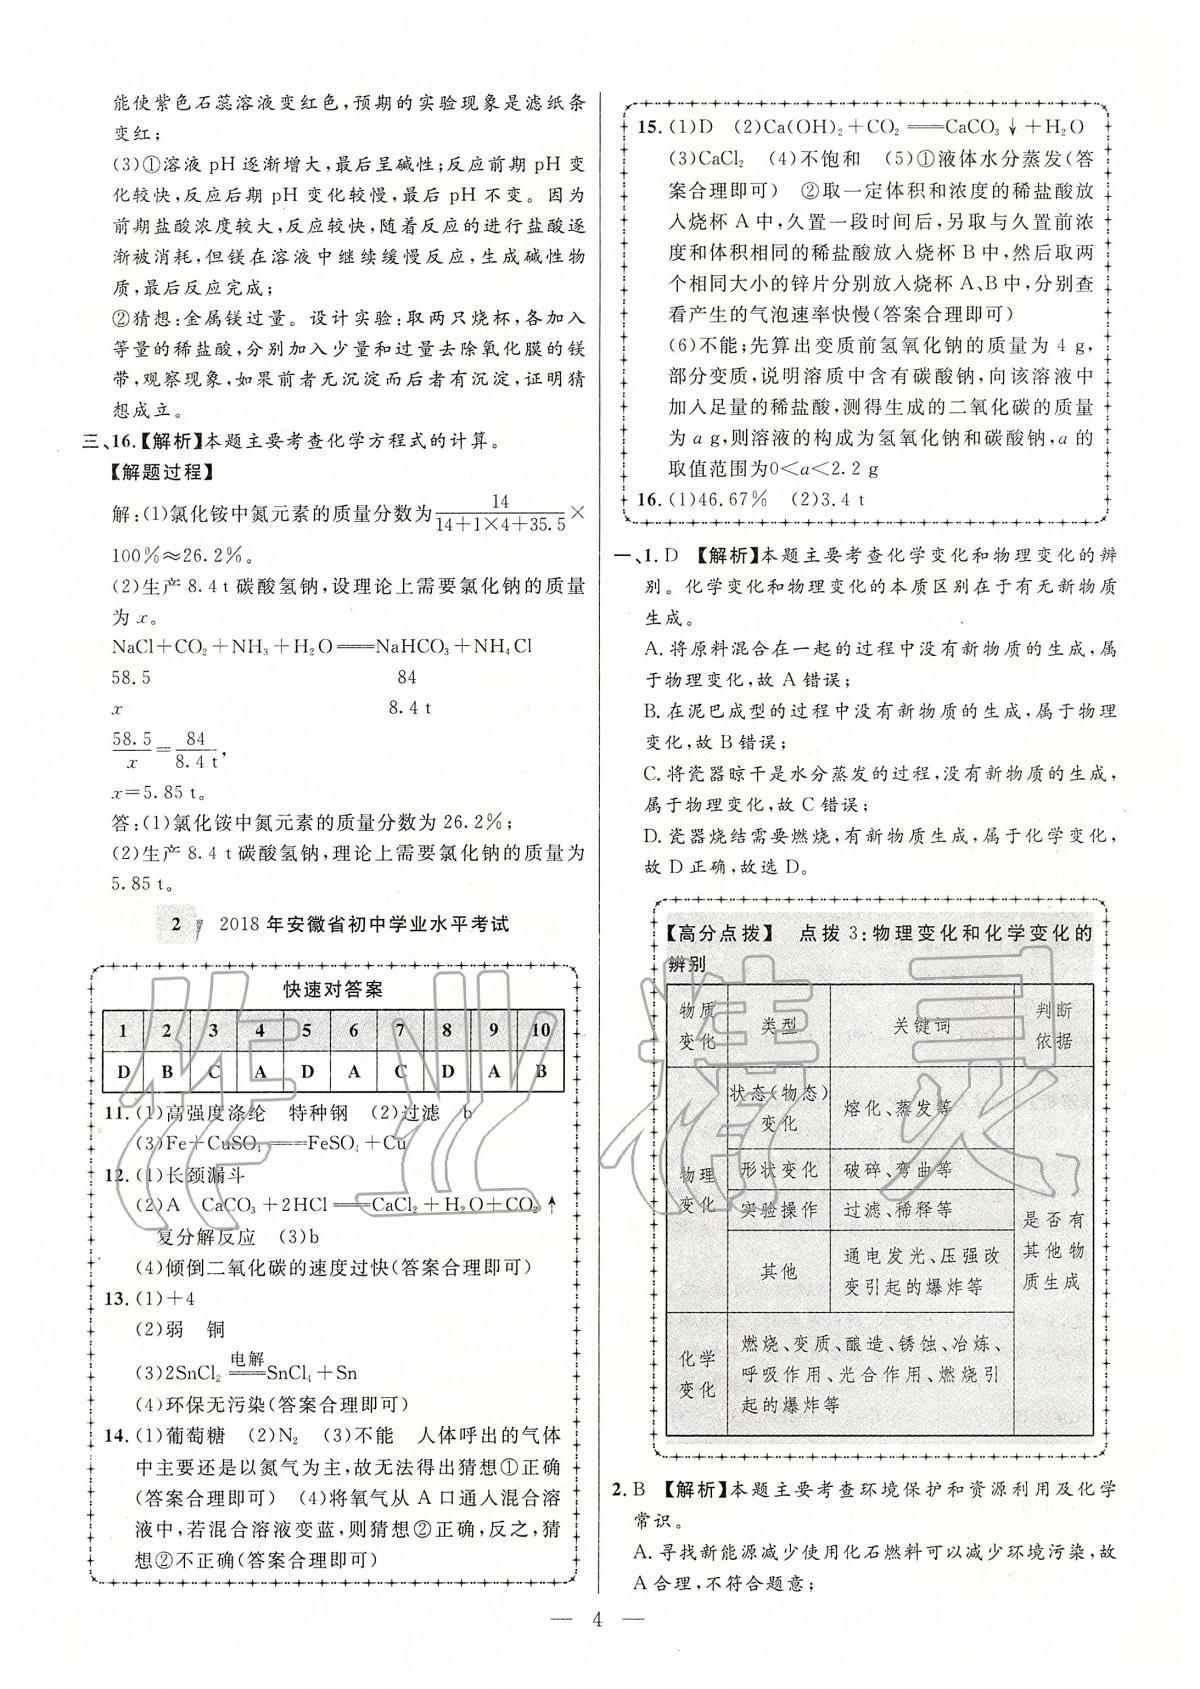 能使紫色石蕊溶液变红色,预期的实验现象是滤纸条
变红;
(3)①溶液 pH 逐渐增大,最后呈碱性;反应前期 pH 变
化较快,反应后期 pH 变化较慢,最后 pH 不变。因为
前期盐酸浓度较大,反应较快,随着反应的进行盐酸逐
渐被消耗,但镁在溶液中继续缓慢反应,生成碱性物
质,最后反应完成;
②猜想:金属镁过量。设计实验:取两只烧杯,各加入
等量的稀盐酸,分别加入少量和过量去除氧化膜的镁
带,观察现象,如果前者无沉淀而后者有沉淀,证明猜
想成立。
三、16.【解析】本题主要考查化学方程式的计算。
【解题过程】
解:(1)氯化铵中氮元素的质量分数为14/(14+1×4+35.5)×
100%≈26.2%。
(2)生产 8.4 t 碳酸氢钠,设理论上需要氯化钠的质量
为 x。
NaCl+CO₂+NH₃+H₂O══NaHCO₃+NH₄Cl
58.5 84
x 8.4 t
58.5/x=84/8.4 t,
x=5.85 t。
答:(1)氯化铵中氮元素的质量分数为 26.2%;
(2)生产 8.4 t 碳酸氢钠,理论上需要氯化钠的质量为
5.85 t。
2 2018 年安徽省初中学业水平考试
快速对答案
1 2 3 4 5 6 7 8 9 10
D B C A D A C D A B
11.(1)高强度涤纶 特种钢 (2)过滤 b
(3)Fe+CuSO₄══FeSO₄+Cu
12.(1)长颈漏斗
(2)A CaCO₃+2HCl══CaCl₂+H₂O+CO₂↑
复分解反应 (3)b
(4)倾倒二氧化碳的速度过快(答案合理即可)
13.(1)+4
(2)弱 铜
(3)2SnCl₂ 电解══ SnCl₄+Sn
(4)环保无污染(答案合理即可)
14.(1)葡萄糖 (2)N₂ (3)不能 人体呼出的气体
中主要还是以氮气为主,故无法得出猜想①正确
(答案合理即可) (4)将氧气从 A 口通入混合溶
液中,若混合溶液变蓝,则猜想②正确,反之,猜
想②不正确(答案合理即可)
15.(1)D (2)Ca(OH)₂+CO₂══CaCO₃↓+H₂O
(3)CaCl₂ (4)不饱和 (5)①液体水分蒸发(答
案合理即可) ②取一定体积和浓度的稀盐酸放
入烧杯 A 中,久置一段时间后,另取与久置前浓
度和体积相同的稀盐酸放入烧杯 B 中,然后取两
个相同大小的锌片分别放入烧杯 A、B 中,分别查
看产生的气泡速率快慢(答案合理即可)
(6)不能;先算出变质前氢氧化钠的质量为 4 g,
部分变质,说明溶质中含有碳酸钠,向该溶液中
加入足量的稀盐酸,测得生成的二氧化碳的质量
为 a g,则溶液的构成为氢氧化钠和碳酸钠,a 的
取值范围为0<a<2.2 g
16.(1)46.67% (2)3.4 t
一、1. D 【解析】本题主要考查化学变化和物理变化的辨
别。化学变化和物理变化的本质区别在于有无新物质
生成。
A. 将原料混合在一起的过程中没有新物质的生成,属
于物理变化,故 A 错误;
B. 在泥巴成型的过程中没有新物质的生成,属于物理
变化,故 B 错误;
C. 将瓷器晾干是水分蒸发的过程,没有新物质的生成,
属于物理变化,故 C 错误;
D. 瓷器烧结需要燃烧,有新物质生成,属于化学变化,
故 D 正确,故选 D。
【高分点拨】 点拨 3:物理变化和化学变化的
辨别
物质变化 类型 关键词 判断依据
物理变化 状态(物态)变化 熔化、蒸发等 是否有其他物质生成
形状变化 破碎、弯曲等
实验操作 过滤、稀释等
其他 通电发光、压强改变引起的爆炸等
化学变化 燃烧、变质、酿造、锈蚀、冶炼、
呼吸作用、光合作用、燃烧引
起的爆炸等
2. B 【解析】本题主要考查环境保护和资源利用及化学
常识。
A. 寻找新能源减少使用化石燃料可以减少环境污染,故
A 合理,不符合题意;
— 4 —
作业精灵